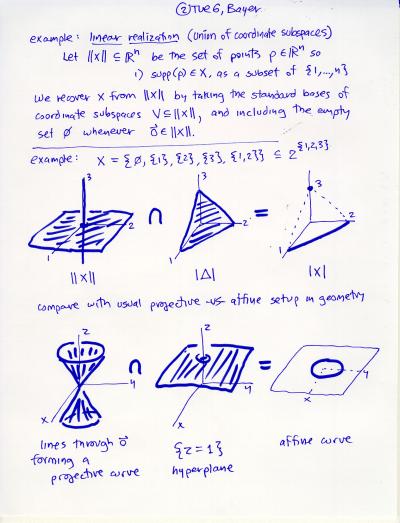 ② Tue 6, Bayer
example: linear realization (union of coordinate subspaces)
Let ||X|| ⊆ ℝⁿ be the set of points p ∈ ℝⁿ so
1) supp(p) ∈ X, as a subset of {1,...,n}
We recover X from ||X|| by taking the standard bases of
coordinate subspaces V ⊆ ||X||, and including the empty
set ∅ whenever 0⃗ ∈ ||X||.
example: X = {∅, {1}, {2}, {3}, {1,2}} ⊆ 2^{1,2,3}
3
2
1
||X||
∩
3
2
1
|Δ|
=
3
2
1
|X|
compare with usual projective -vs- affine setup in geometry
z
y
x
∩
z
y
x
=
y
x
lines through 0⃗
forming a
projective curve
{z=1}
hyperplane
affine curve